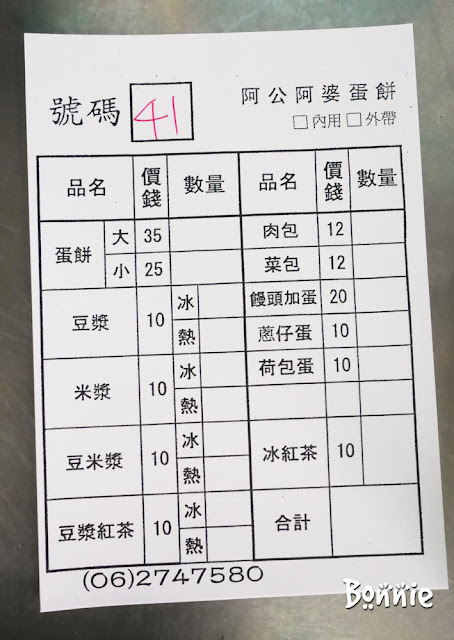 阿公阿婆蛋餅
號碼 41 □內用 □外帶
品名 價錢 數量 品名 價錢 數量
蛋餅 大 35 肉包 12
小 25 菜包 12
豆漿 10 冰 饅頭加蛋 20
熱 蔥仔蛋 10
米漿 10 冰 荷包蛋 10
熱
豆米漿 10 冰 冰紅茶 10
熱
豆漿紅茶 10 冰 合計
熱
(06)2747580
Bonnie